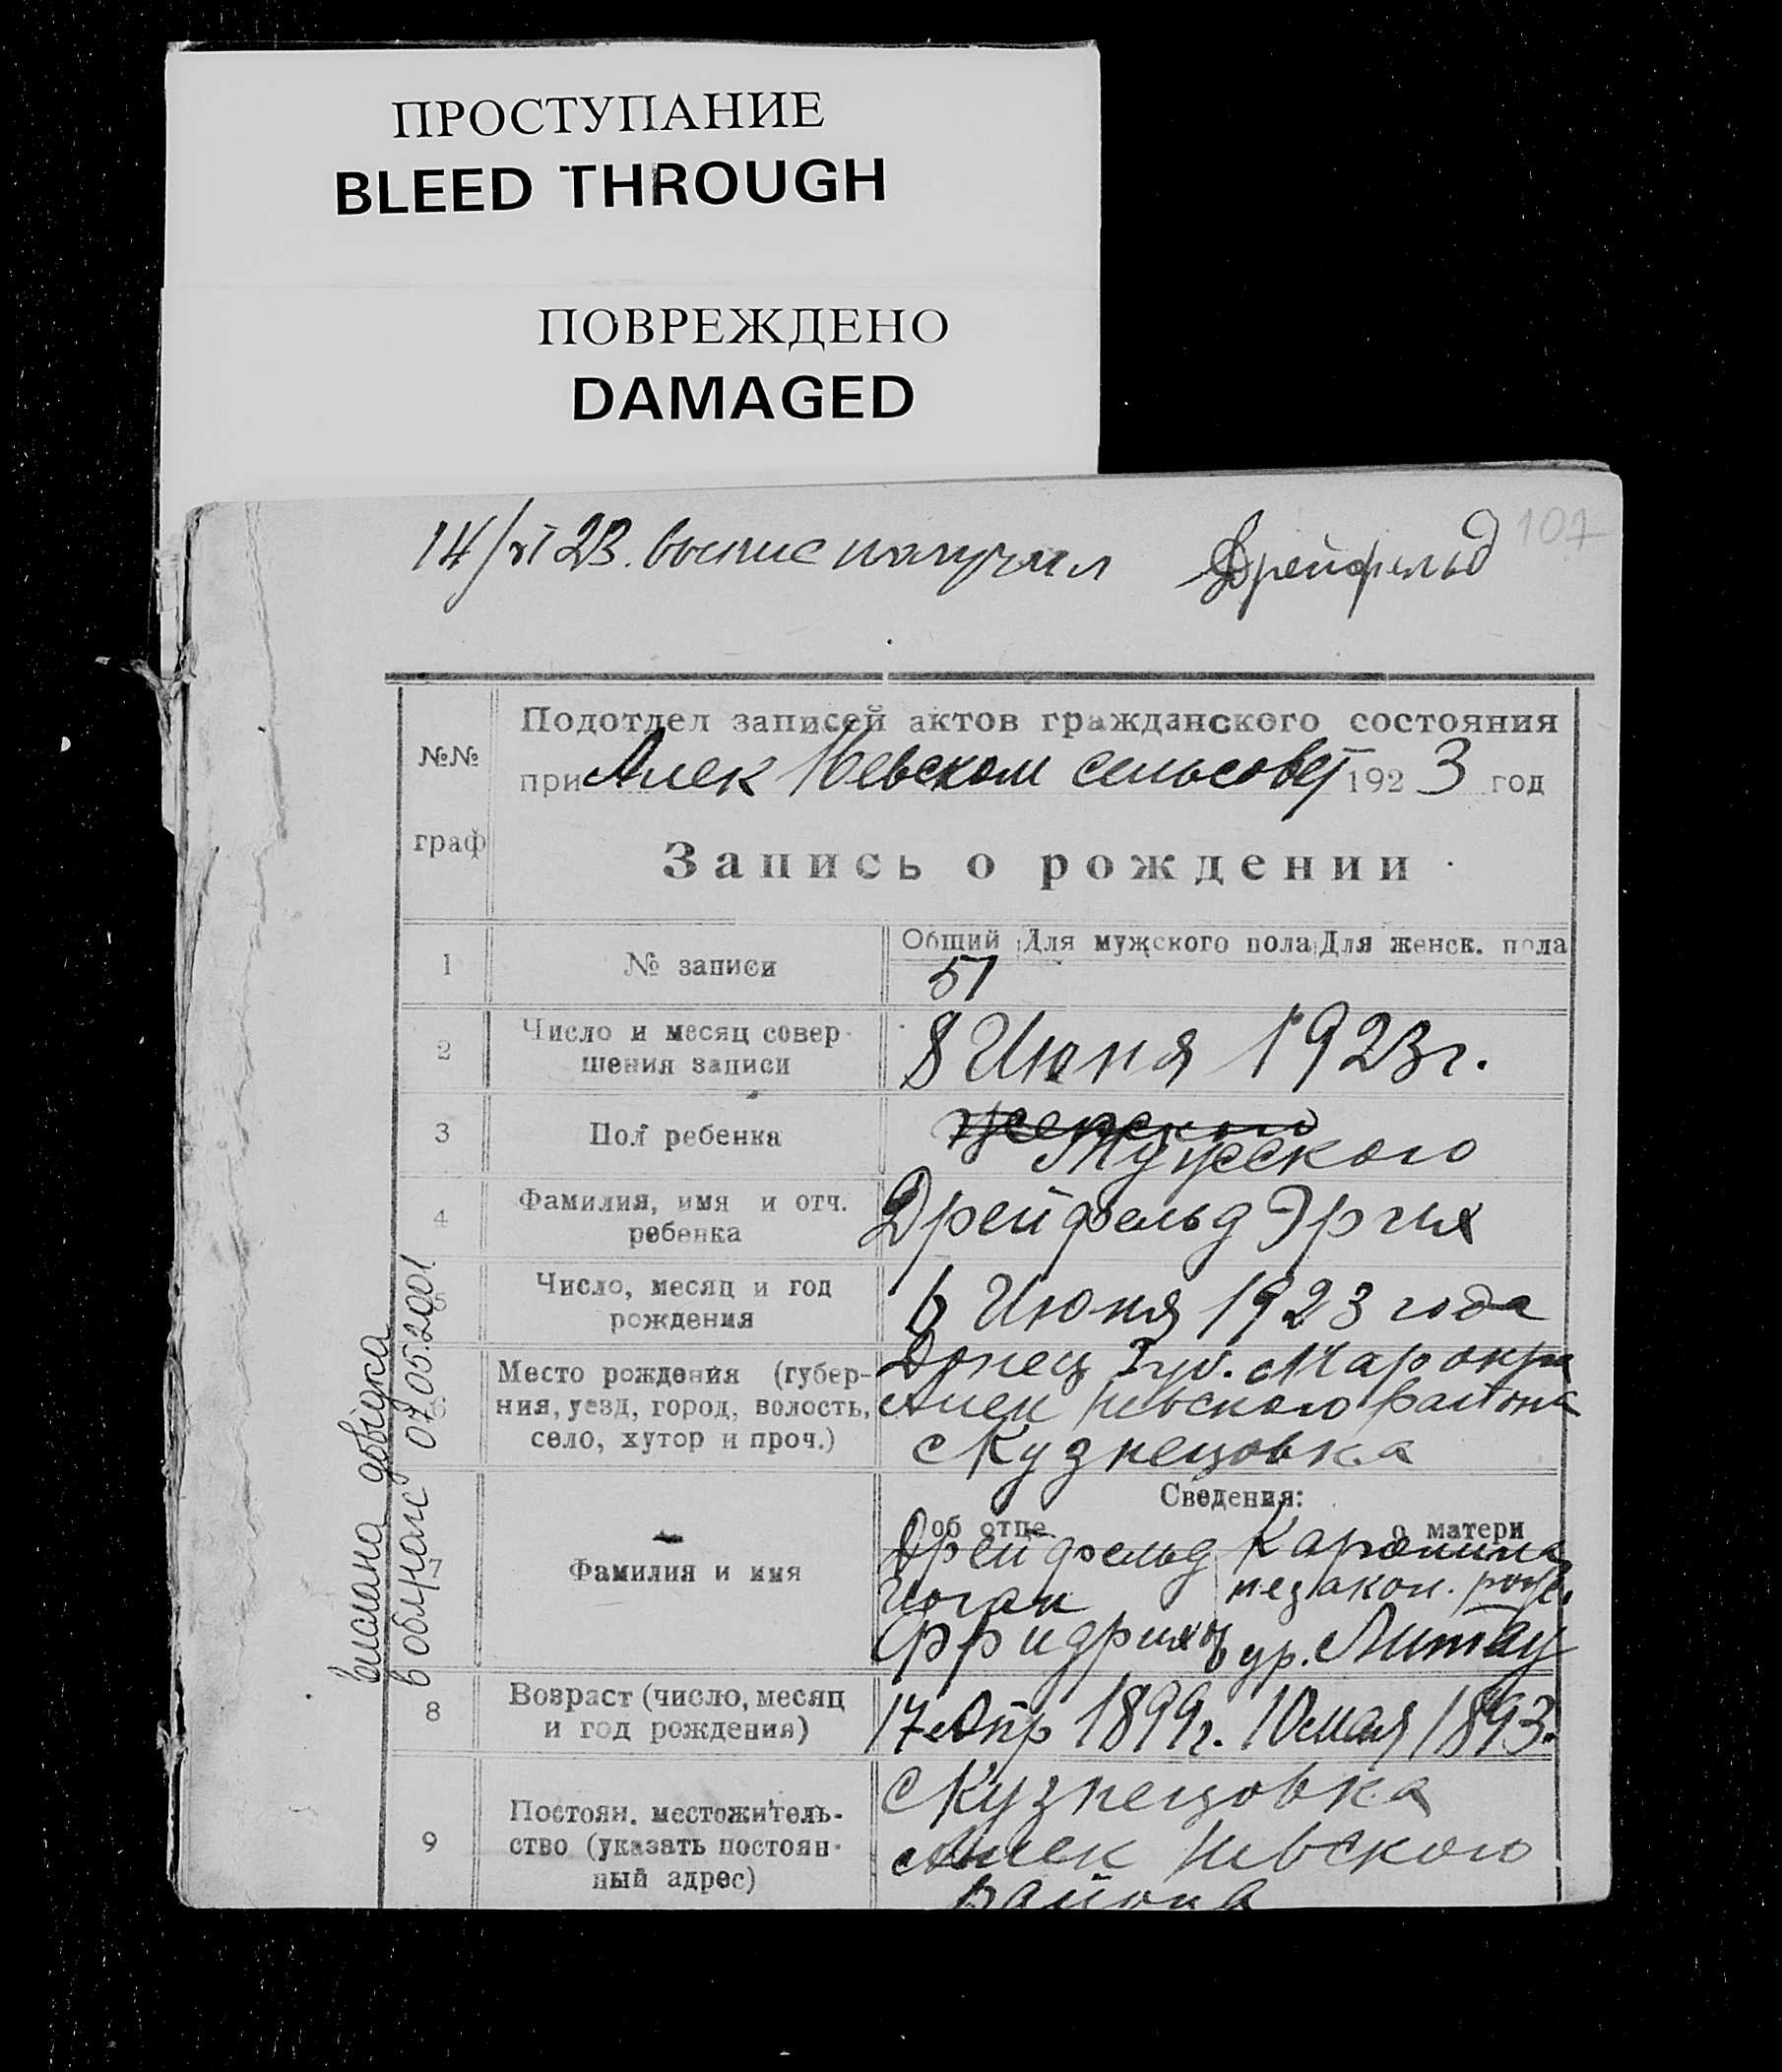 ПРОСТУПАНИЕ
BLEED THROUGH
ПОВРЕЖДЕНО
DAMAGED
107
14/VI 23. выпис получил Дрейфельд
№№
граф
Подотдел записей актов гражданского состояния
при Алек Невском сельсовет 1923 год
Запись о рождении
Общий Для мужского пола Для женск. пола
1 № записи 51
2 Число и месяц совер-
шения записи
8 Июня 1923 г.
3 Пол ребенка
женского
Мужского
4 Фамилия, имя и отч.
ребенка
Дрейфельд Эрих
Число, месяц и год
рождения
6 Июня 1923 года
Место рождения (губер-
ния, уезд, город, волость,
село, хутор и проч.)
Донец Губ. Мар окру
Алек Невского района
с Кузнецовка
Сведения:
об отце о матери
7 Фамилия и имя
Дрейфельд
Иоган
Фридрихов
Каролина
незакон. рожд.
ур. Литау
8 Возраст (число, месяц
и год рождения)
17 Апр 1899 г. 10 мая 1893.
9 Постоян. местожитель-
ство (указать постоян-
ный адрес)
с Кузнецовка
Алек Невского
Района
вислана довідка
в облнацс 07.05.2001